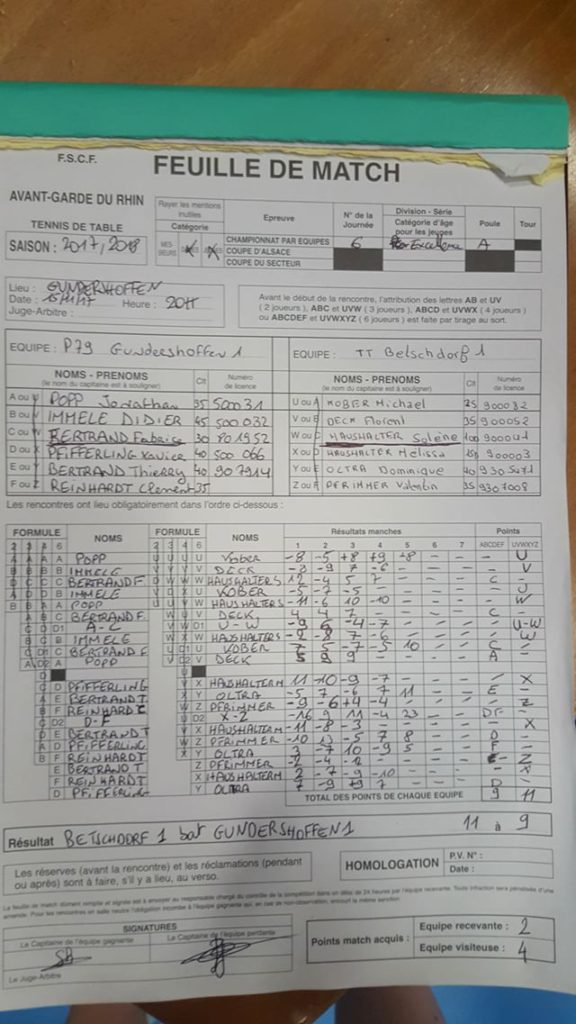 F.S.C.F.
FEUILLE DE MATCH
AVANT-GARDE DU RHIN
TENNIS DE TABLE
SAISON : 2017, 2018
Rayer les mentions inutiles
Catégorie
MES SIEURS
Epreuve
N° de la Journée
Division - Série
Catégorie d'âge pour les jeunes
Poule
Tour
CHAMPIONNAT PAR EQUIPES 6 Excellence A
COUPE D'ALSACE
COUPE DU SECTEUR
Lieu : GUNDERSHOFFEN
Date : 15/11/17 Heure : 20H
Juge-Arbitre :
Avant le début de la rencontre, l'attribution des lettres AB et UV
( 2 joueurs ), ABC et UVW ( 3 joueurs ), ABCD et UVWX ( 4 joueurs )
ou ABCDEF et UVWXYZ ( 6 joueurs ) est faite par tirage au sort.
EQUIPE : P79 Gundershoffen 1
EQUIPE : TT Betschdorf 1
NOMS - PRENOMS (le nom du capitaine est à souligner) Clt Numéro de licence
NOMS - PRENOMS (le nom du capitaine est à souligner) Clt Numéro de licence
A ou U POPP Jonathan 35 500031
U ou A KOBER Michael 25 900032
B ou V IMMELE DIDIER 45 500032
V ou B DECK Florent 35 900052
C ou W BERTRAND Fabrice 30 801952
W ou C HAUSHALTER Solène 100 900041
D ou X PFIFFERLING Xavier 40 500066
X ou D HAUSHALTER Melissa 900003
E ou Y BERTRAND Thierry 40 907914
Y ou E OLTRA Dominique 40 9305471
F ou Z REINHARDT Clement 35
Z ou F PFRIMMER Valentin 35 9307008
Les rencontres ont lieu obligatoirement dans l'ordre ci-dessous :
FORMULE NOMS FORMULE NOMS Résultats manches Points
2 3 4 6 2 3 4 6 1 2 3 4 5 6 7 ABCDEF UVWXYZ
POPP Kober -8 -5 +8 +9 -8 - - - U
IMMELE DECK -3 -9 7 -6 - - - - V
BERTRAND F HAUSHALTER S 12 -4 5 7 - - - C -
IMMELE KOBER -5 -7 -5 - - - - - U
POPP HAUSHALTER S -11 -6 10 -10 - - - - W
BERTRAND F DECK 4 4 - - - - C -
A-C U-W -9 6 -4 -7 - - - - U-W
IMMELE HAUSHALTER S -2 -8 7 -6 - - - - W
BERTRAND F KOBER 7 5 -7 -5 10 - - C -
POPP DECK 5 9 - - - - A -
PFIFFERLING HAUSHALTER M 11 -10 -9 -7 - - - - X
BERTRAND T OLTRA -5 7 -6 7 11 - - E -
REINHARDT C PFRIMMER -9 -6 +4 -4 - - - - Z
D-F X-Z -16 9 11 -4 23 - - DF -
BERTRAND T HAUSHALTER M -11 -8 -3 - - - - - X
PFIFFERLING PFRIMMER 5 7 8 - - D -
REINHARDT OLTRA 3 -7 10 -9 5 - - F -
BERTRAND T PFRIMMER -2 -4 - - - - - Z
REINHARDT HAUSHALTER M 2 -7 -9 -10 - - - - X
PFIFFERLING OLTRA 7 -9 +9 7 - - - D -
TOTAL DES POINTS DE CHAQUE EQUIPE 9 11
Résultat BETSCHDORF 1 bat GUNDERSHOFFEN 1 11 à 9
Les réserves (avant la rencontre) et les réclamations (pendant
ou après) sont à faire, s'il y a lieu, au verso.
HOMOLOGATION
P.V. N° :
Date :
La feuille de match dûment remplie et signée est à envoyer au responsable chargé du contrôle de la compétition dans un délai de 24 heures par l'équipe recevante. Toute infraction sera pénalisée d'une
amende. Pour les rencontres en salle neutre l'obligation incombe à l'équipe gagnante qui, en cas de non-observation, encourt la même sanction.
SIGNATURES
Le Capitaine de l'équipe gagnante
Le Capitaine de l'équipe perdante
Le Juge-Arbitre
Points match acquis :
Equipe recevante : 2
Equipe visiteuse : 4